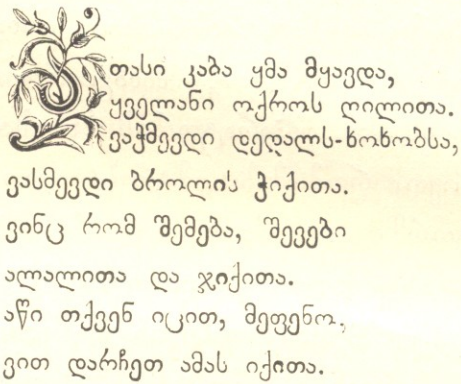 ათასი კაბა ყმა მყავდა,
ყველანი ოქროს ღილითა.
ვაჭმევდი დედალს-ხოხობსა,
ვასმევდი ბროლის ჭიქითა.
ვინც რომ შემება, შევები
ალალითა და ჯიქითა.
აწი თქვენ იცით, მეფენო,
ვით დარჩეთ ამას იქითა.